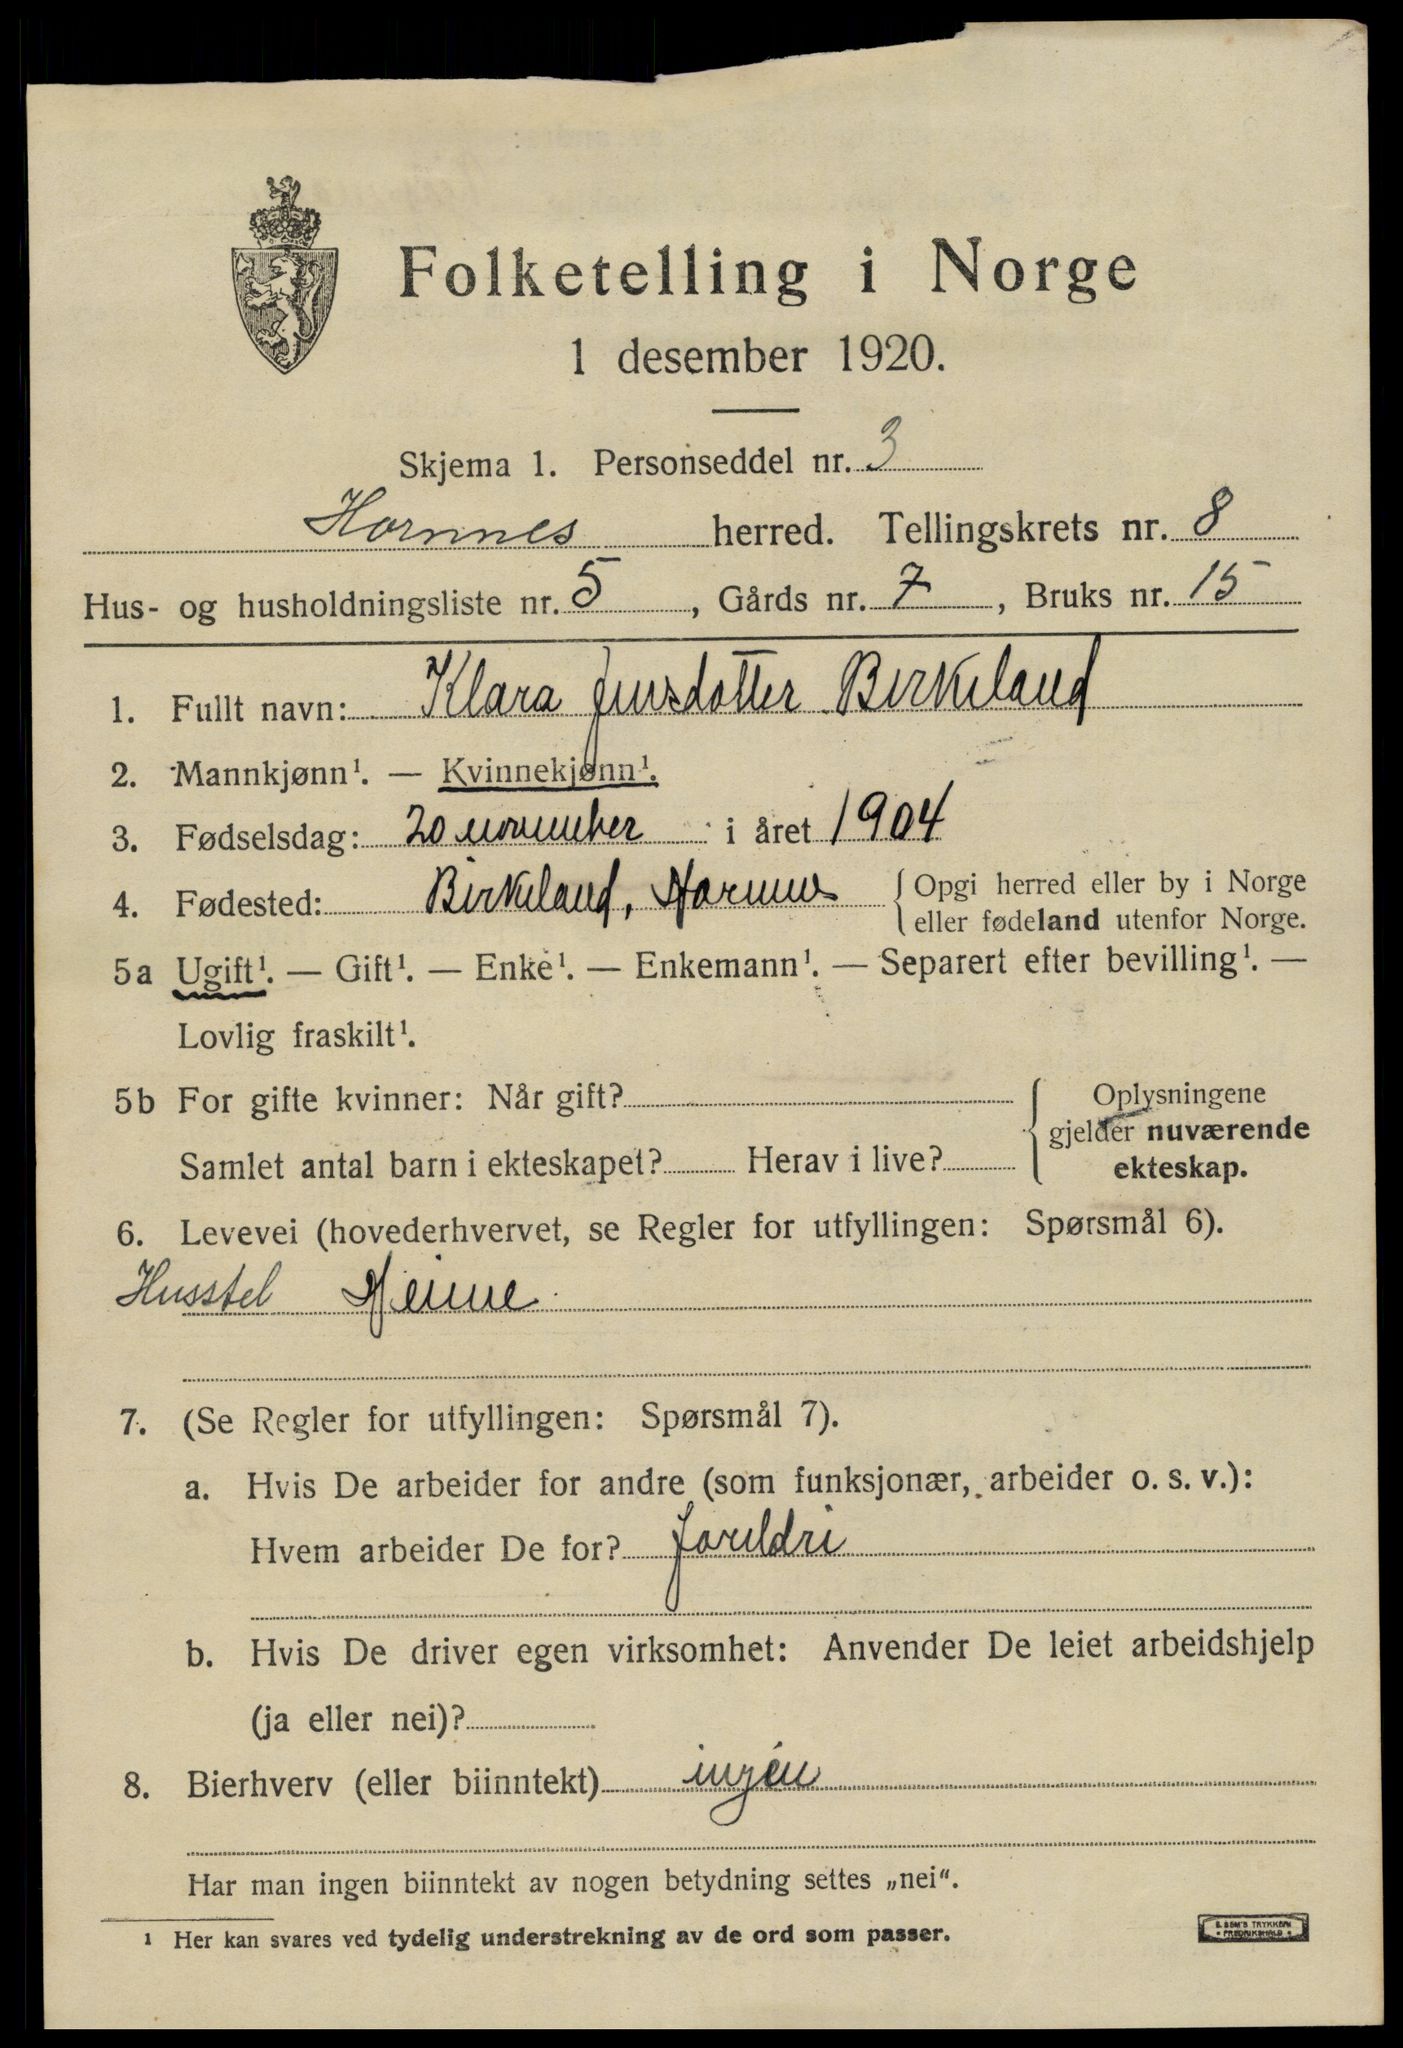 Folketelling i Norge
1 desember 1920.
Skjema 1. Personseddel nr. 3
Hornnes herred. Tellingskrets nr. 8
Hus- og husholdningsliste nr. 5, Gårds nr. 7, Bruks nr. 15
1. Fullt navn: Klara Jensdotter Birkeland
2. Mannkjønn¹. — Kvinnekjønn¹.
3. Fødselsdag: 20 november i året 1904
4. Fødested: Birkeland, Hornnes { Opgi herred eller by i Norge
eller fødeland utenfor Norge.
5a Ugift¹. — Gift¹. — Enke¹. — Enkemann¹. — Separert efter bevilling¹. —
Lovlig fraskilt¹.
5b For gifte kvinner: Når gift?
Samlet antal barn i ekteskapet? Herav i live?
{ Oplysningene
gjelder nuværende
ekteskap.
6. Levevei (hovederhvervet, se Regler for utfyllingen: Spørsmål 6).
Husstel Heime
7. (Se Regler for utfyllingen: Spørsmål 7).
a. Hvis De arbeider for andre (som funksjonær, arbeider o. s. v.):
Hvem arbeider De for? foreldri
b. Hvis De driver egen virksomhet: Anvender De leiet arbeidshjelp
(ja eller nei)?
8. Bierhverv (eller biinntekt) ingen
Har man ingen biinntekt av nogen betydning settes „nei“.
¹ Her kan svares ved tydelig understrekning av de ord som passer.
E. SEM'S TRYKKERI
• FREDRIKSHALD •